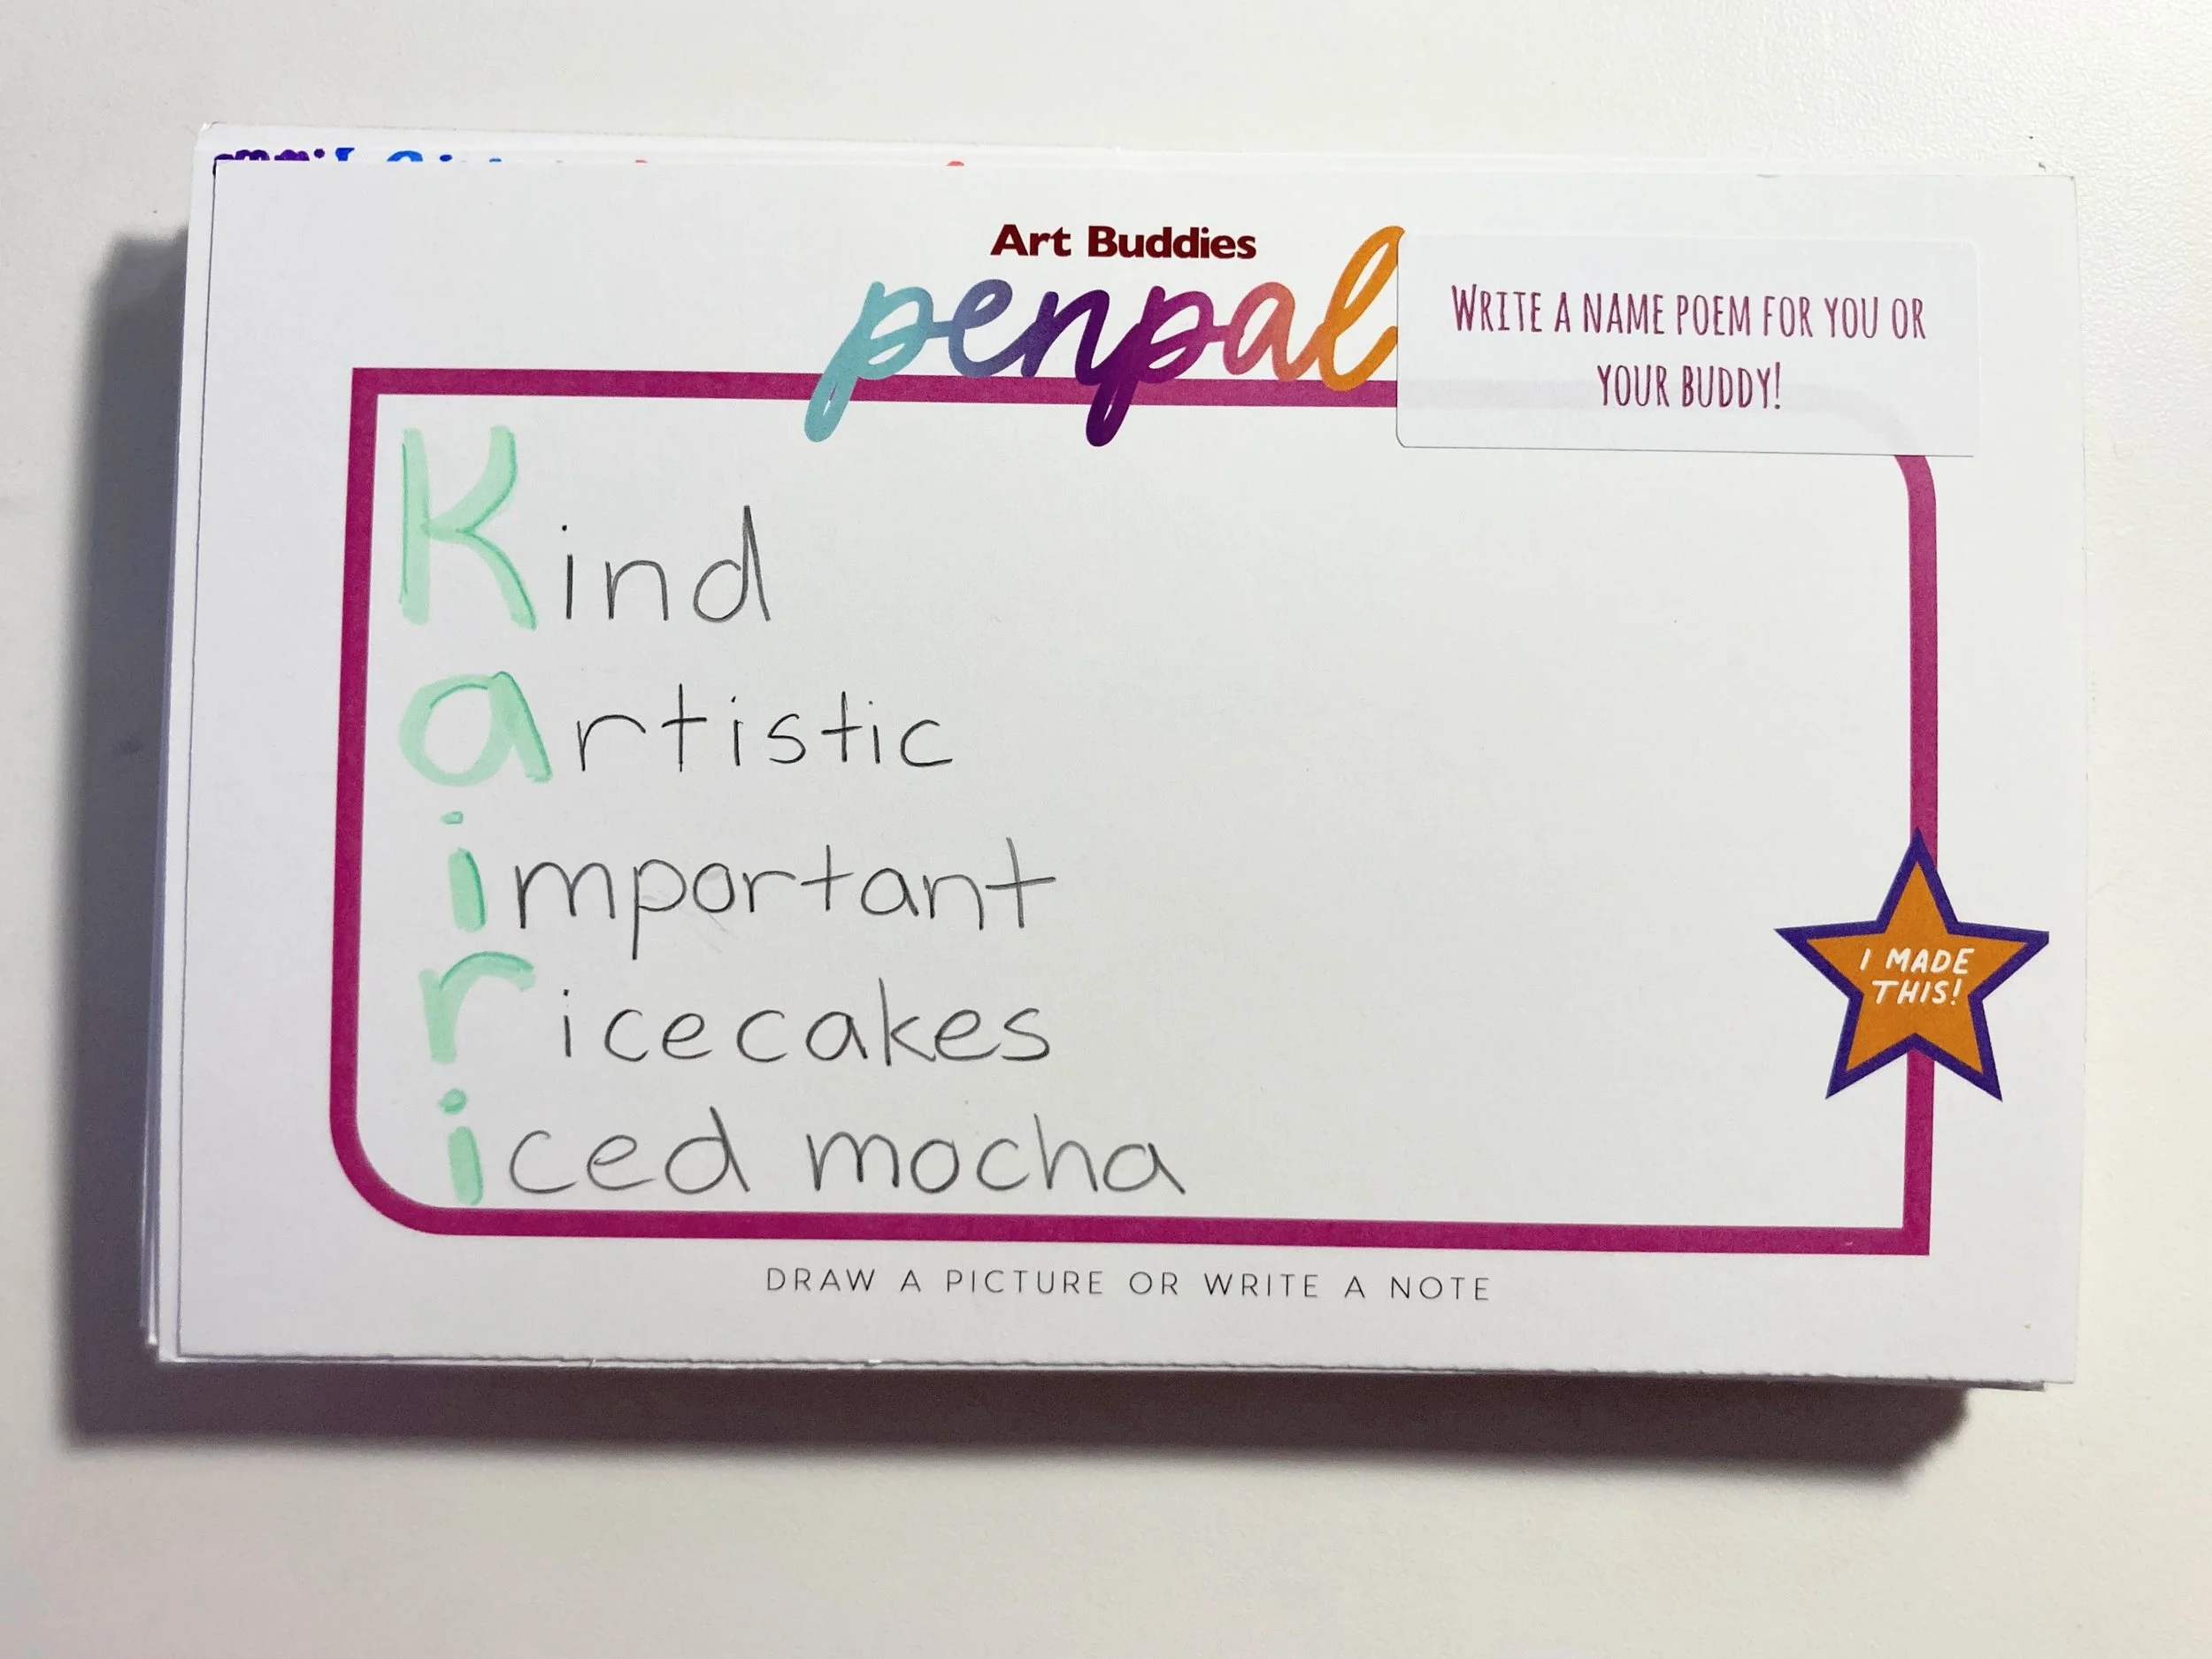 Art Buddies
penpal
WRITE A NAME POEM FOR YOU OR
YOUR BUDDY!
Kind
artistic
important
ricecakes
iced mocha
I MADE
THIS!
DRAW A PICTURE OR WRITE A NOTE